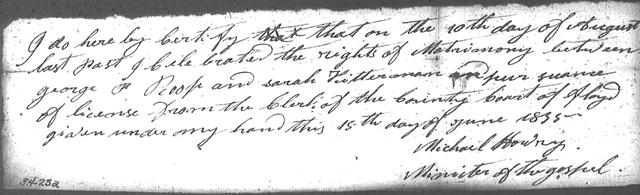 I do here by Certify that that on the 10th day of August
last past I Celebrated the rights of Matrimony between
george F Poop and sarah Kitterman in pursuance
of license from the Clerk of the County Court of Floyd
given under my hand this 15th day of June 1835
Michael Howry
Minister of the gospel
34-23a